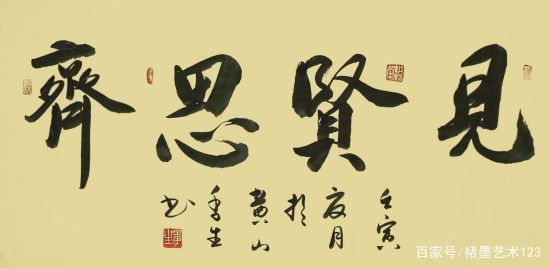 見賢思齊
壬寅
夏月
於
黄山
生
书
百家号/楮墨艺术123